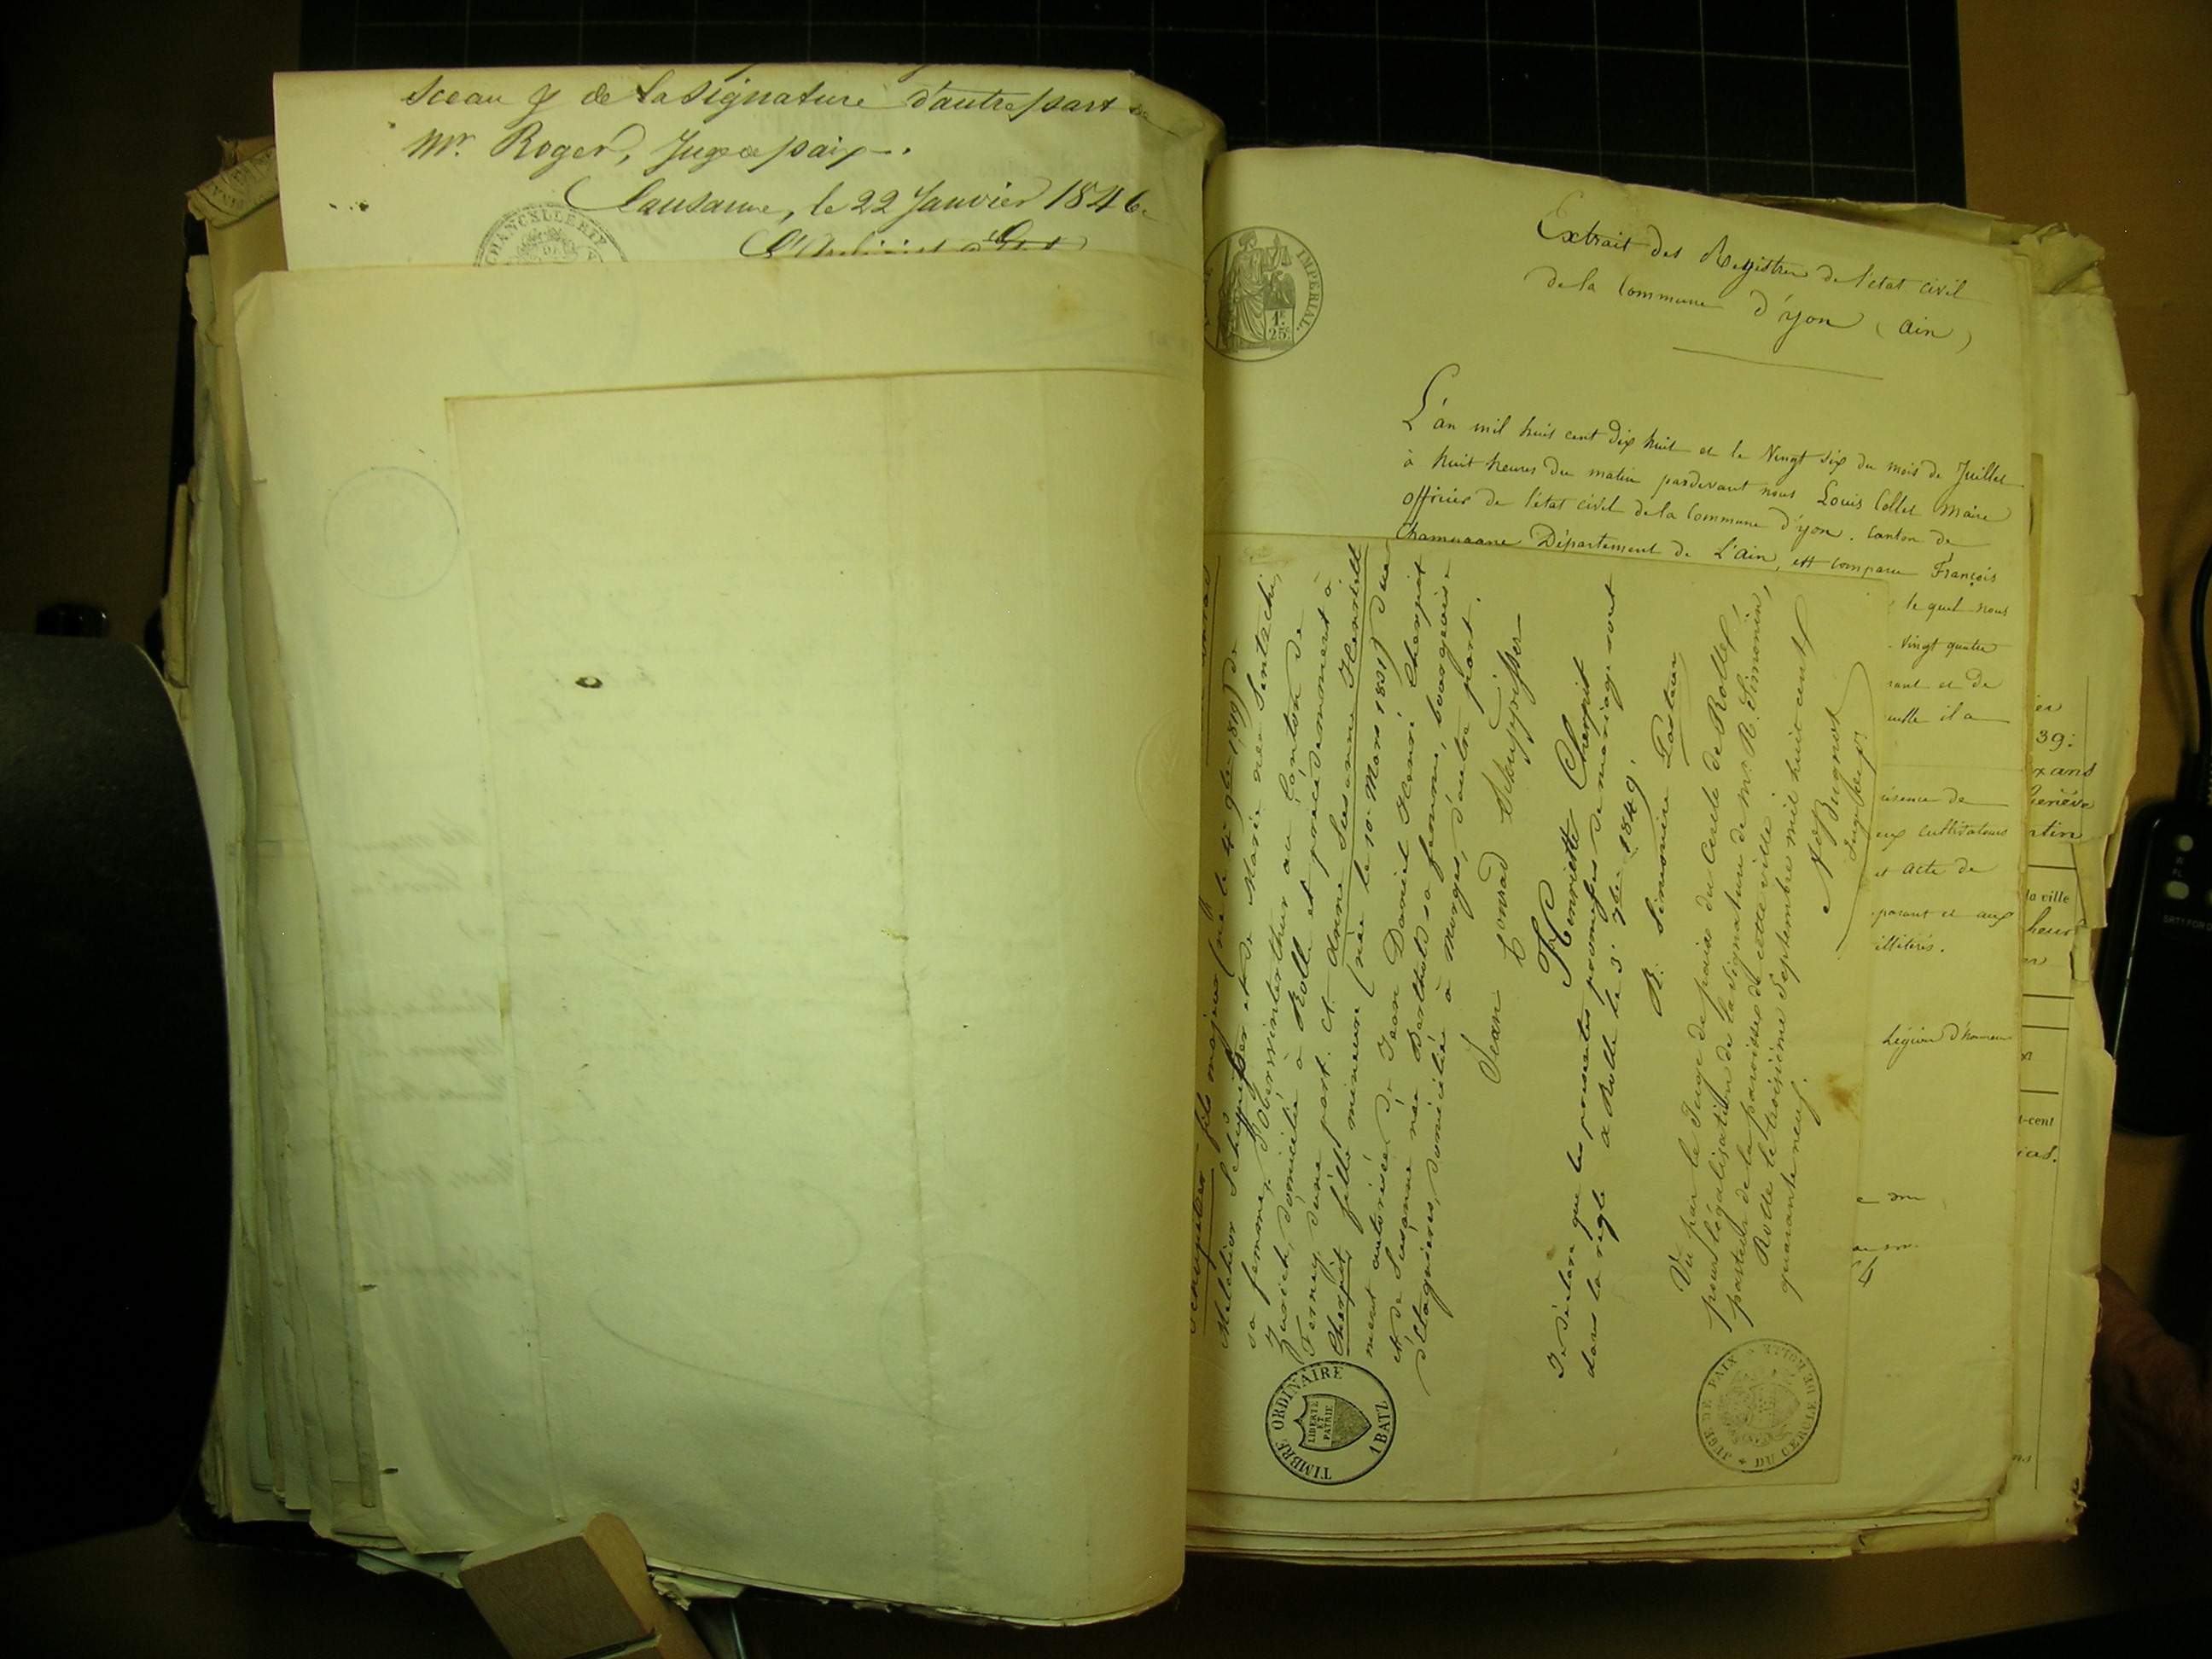 sceau & de la signature d'autre part de
Mr. Roger, Juge de paix.
Lausanne, le 22 Janvier 1846.
CHANCELLERIE
IMPERIAL.
1F.
25c.
Extrait des Registres de l'état civil
de la Commune d'yon (ain)
L'an mil huit cent dix huit et le Vingt six du mois de Juillet
à huit heures du matin pardevant nous Louis Collet Maire
officier de l'état civil de la Commune d'yon. Canton de
Champagne Département de L'ain, est comparu François
le quel nous
vingt quatre
rant et de
uelle il a
ésence de
eux cultivateurs
et acte de
parant et aux
illitérés.
Légion d'honneur
fils majeur (né le 4 9bre 1819) de
Melchior Schuppisser et de Marie née
sa femme, d'Oberwinterthur au Canton de
Zurich, domicilié à Rolle et précédemment à
Ferney, d'une part. Et Anne Susanne Henriette
Cherpit, fille mineure (née le 10. Mars 1831) due
ment autorisée de Jean Daniel Henri Cherpit
et de Susanne née Berthold sa femme, bourgeoise
d'Etagnières, domiciliée à Morges, d'autre part.
Jean Conrad Schuppisser
Henriette Cherpit
Je déclare que les présentes promesses de mariage sont
dans la règle à Rolle le 3. 7bre 1849.
R. Simonin Pasteur
Vu par le Juge de paix du Cercle de Rolle,
pour légalisation de la signature de mr. R. Simonin,
pasteur de la paroisse de cette ville.
Rolle le troisième Septembre mil huit cent
quarante neuf.
Juge de paix
TIMBRE ORDINAIRE
LIBERTÉ
ET
PATRIE
1 BATZ
JUGE DE PAIX
DU CERCLE DE ROLLE
39:
x ans
Genève
rtin
la ville
heur
t-cent